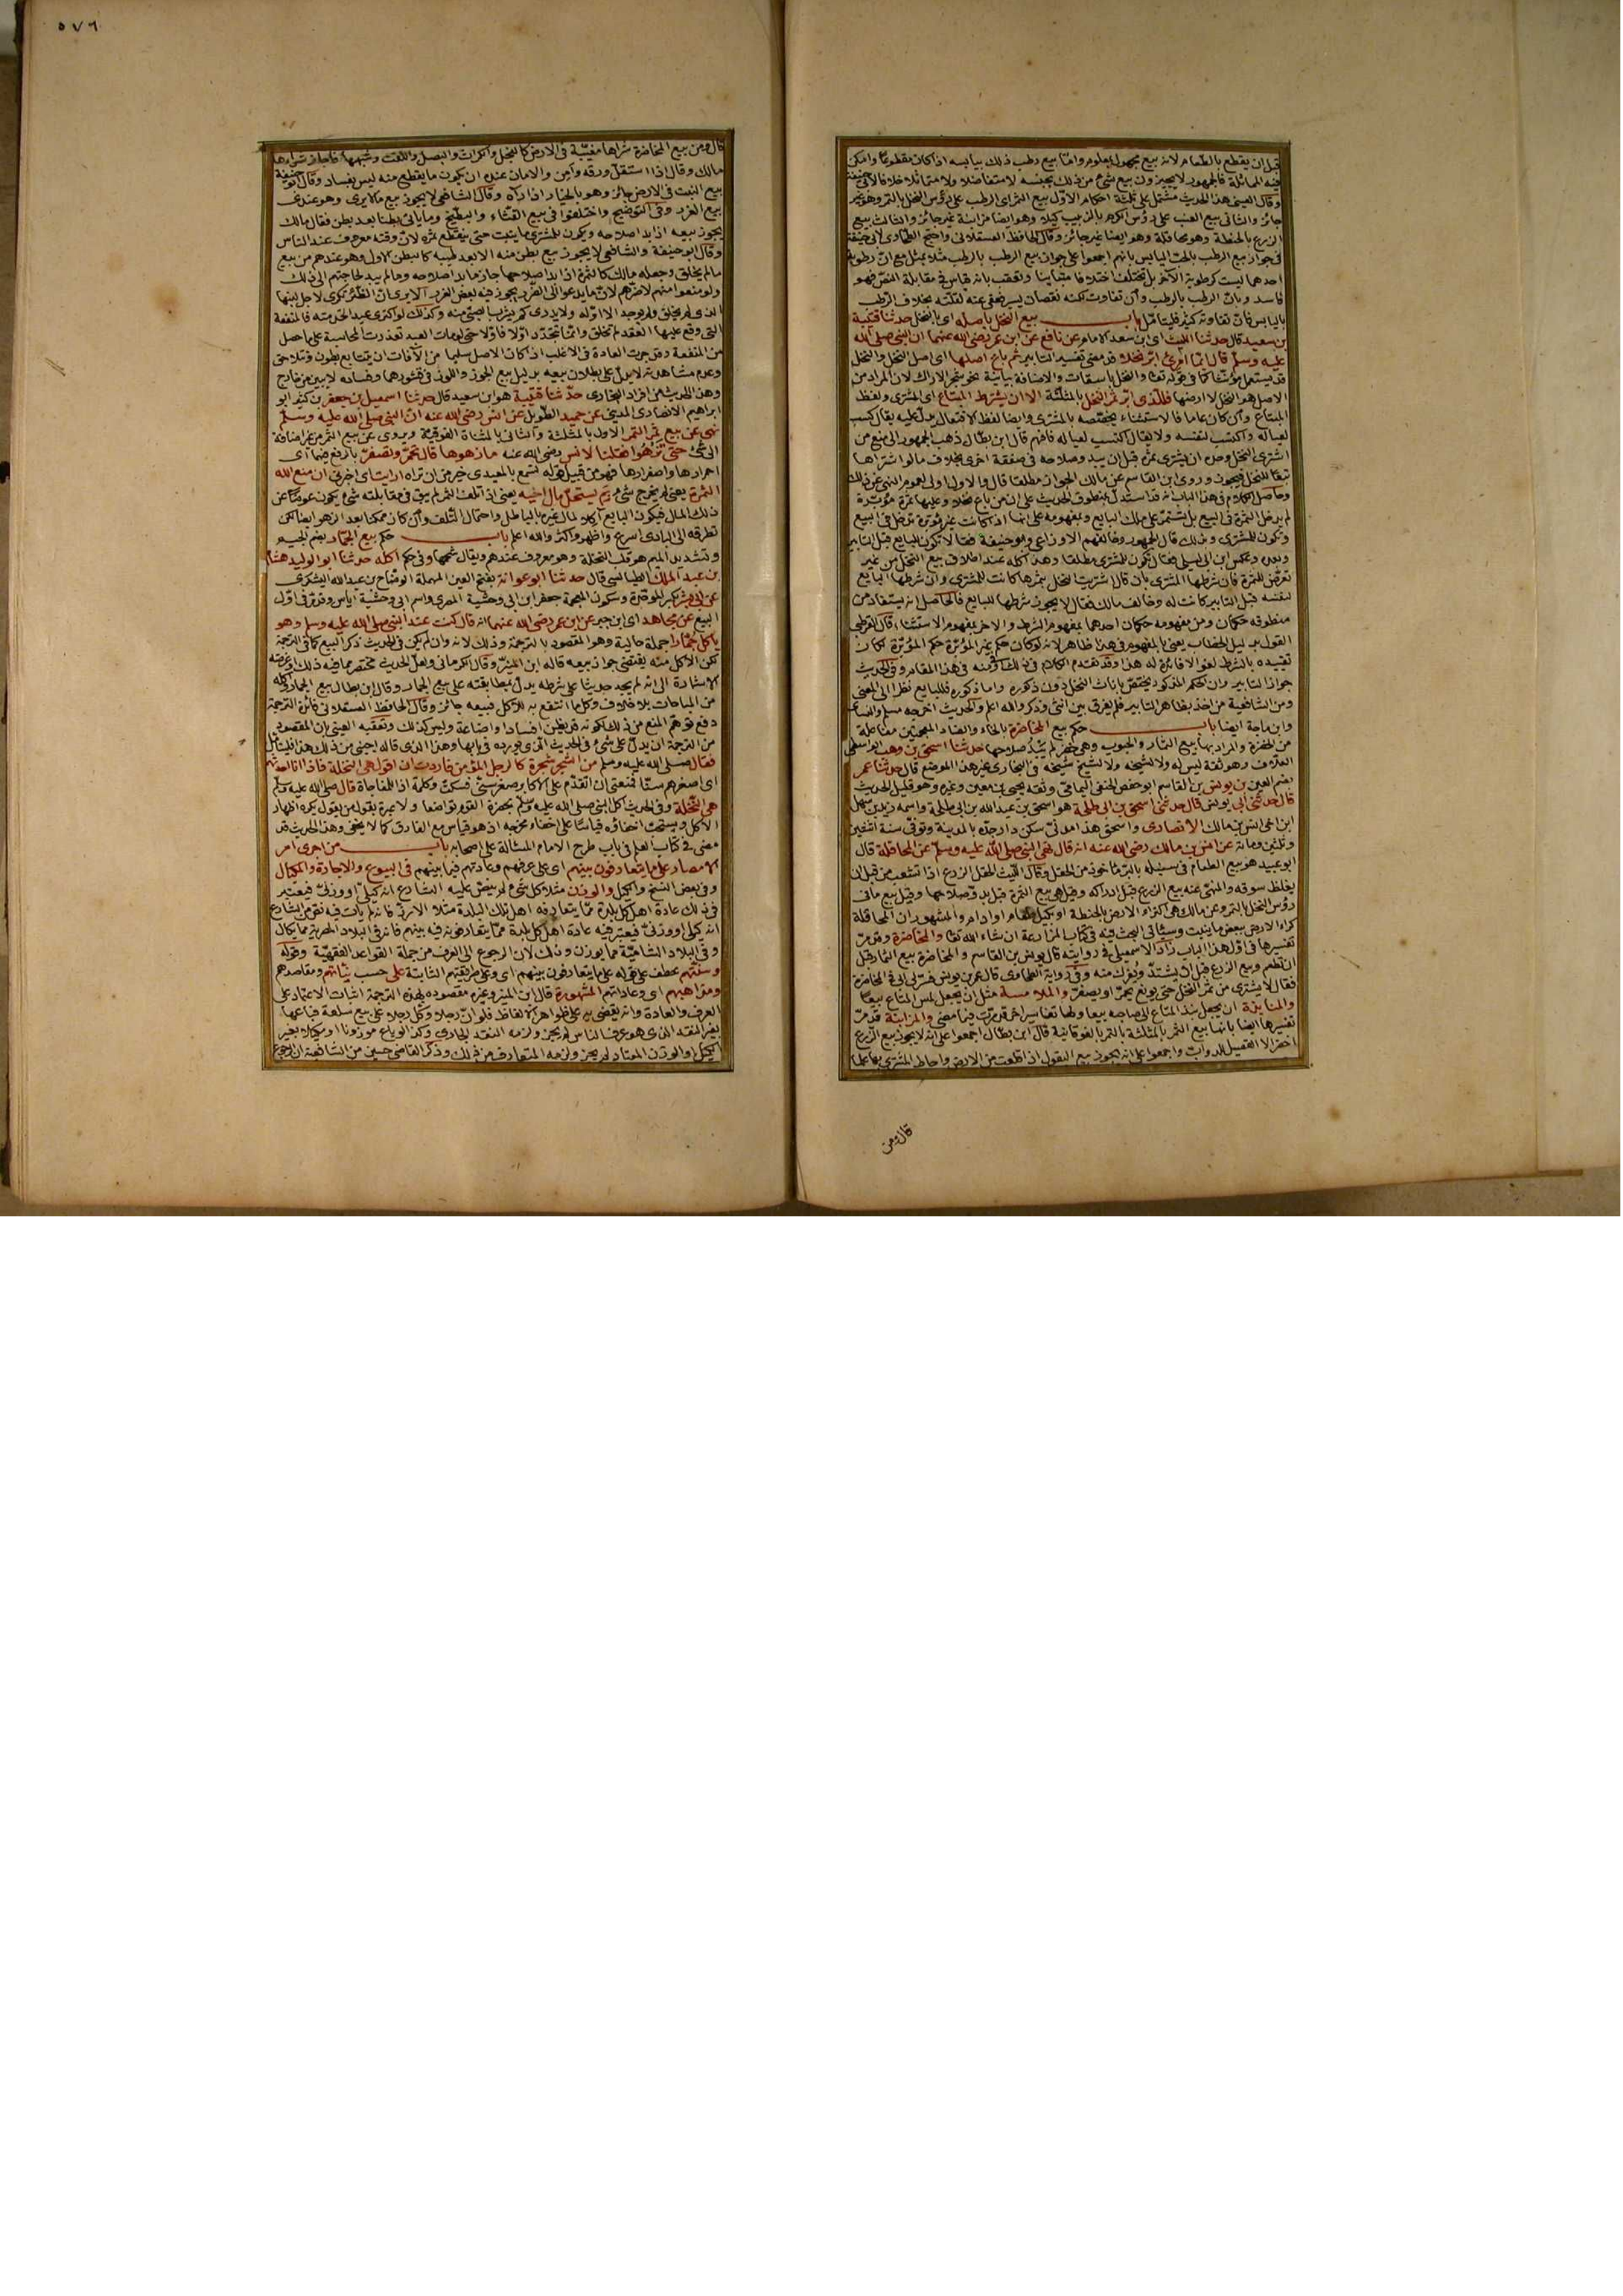 قبل ان يقطع بالطعام لانه بيع مجهول بمعلوم واما بيع رطب ذلك بيابسه اذا كان مقطوعا وامكن
فيه المماثلة فالجمهور لا يجيزون بيع شئ من ذلك بجنسه لا متفاضلا ولا متماثلا خلافا لابي حنيفة
وقال العيني هذا الحديث مشتمل على ثلثة احكام الاول بيع الثمر اى الرطب على رؤس النخل بالتمر وهو غير
جائز والثانى بيع العنب على رؤس الكرم بالزبيب كيلا وهو ايضا مزابنة غير جائز والثالث بيع
الزرع بالحنطة وهو محاقلة وهو ايضا غير جائز وقال الحافظ العسقلانى واحتج الطحاوى لابى حنيفة
فى جواز بيع الزرع الرطب بالحب اليابس بانهم اجمعوا على جواز بيع الرطب بالرطب مثلا بمثل مع ان رطوبة
احدهما ليست كرطوبة الآخر بل تختلف اختلافا متباينا وتعقب بانه قياس فى مقابلة النص فهو
فاسد وبان الرطب بالرطب وان تفاوت لكنه نقصان يسير فعفى عنه لقلته بخلاف الرطب
باليابس فان تفاوته كثير فليتامل باب بيع النخل باصله اى باصل النخل حدثنا قتيبة
بن سعيد قال حدثنا الليث اى ابن سعد الامام عن نافع عن ابن عمر رضى الله عنهما ان النبى صلى الله
عليه وسلم قال ايما امرئ ابر نخلا قد معنى تفسير التابير ثم باع اصلها اى اصل النخل والنخل
قد يستعمل مؤنثا كما فى قوله تعالى والنخل باسقات والاضافة بيانية نحو شجر الاراك لان المراد من
الاصل هو النخل لا ارضها فللذى ابر ثمر النخل بالمثلثة الا ان يشترط المبتاع اى المشترى ولفظ
المبتاع وان كان عاما فالاستثناء يخصصه بالمشترى وايضا لفظ الافتعال يدل عليه يقال كسب
لعياله واكتسب لنفسه ولا يقال اكتسب لعياله فافهم قال ابن بطال ذهب الجمهور الى منع من
اشترى النخل وحده ان يشترى ثمره قبل ان يبدو صلاحه فى صفقة اخرى بخلاف ما لو اشتراها
تبعا للنخل فيجوز وروى ابن القاسم عن مالك الجواز مطلقا قال والاول اولى لعموم النهى عن ذلك
وحاصل الكلام فى هذا الباب انه قد استدل بمنطوق الحديث على ان من باع نخلا وعليها ثمرة مؤبرة
لم يدخل الثمرة فى البيع بل تستمر على ملك البايع وبمفهومه على انها اذا كانت غير مؤبرة تدخل فى البيع
وتكون للمشترى وبذلك قال الجمهور وخالفهم الاوزاعى وابو حنيفة فقالا تكون للبايع قبل التابير
وبعده وعكس ابن ابى ليلى فقال تكون للمشترى مطلقا وهذا كله عند اطلاق بيع النخل من غير
تعرض للثمرة فان شرطها المشترى بان قال اشتريت النخل بثمرها كانت للمشترى وان شرطها البايع
لنفسه قبل التابير كانت له وخالف مالك فقال لا يجوز شرطها للبايع فالحاصل انه يستفاد من
منطوقه حكمان ومن مفهومه حكمان احدهما بمفهوم الشرط والاخر بمفهوم الاستثناء قال القرطبى
القول بدليل الخطاب يعنى المفهوم فى هذا ظاهر لانه لو كان حكم غير المؤبرة حكم المؤبرة لكان
تقييده بالشرط لغوا لا فائدة له هذا وقد تقدم الكلام فى ذلك فى هذا المقام وفى الحديث
جواز التابير وان الحكم المذكور يختص باناث النخل دون ذكوره واما ذكوره فللبايع نظرا الى المعنى
ومن الشافعية من اخذ بظاهر التابير فلم يفرق بين انثى وذكر والله اعلم والحديث اخرجه مسلم والنسائى
وابن ماجة ايضا باب حكم بيع المخاضرة بالخاء والضاد المعجمتين مفاعلة
من الخضرة والمراد بها بيع الثمار والحبوب وهى خضر لم يبد صلاحها حدثنا اسحق بن وهب ابو اسحق
العلاف وهو ثقة ليس له ولا لشيخه ولا لشيخ شيخه فى البخارى غير هذا الموضع قال حدثنا عمر
بضم العين بن يونس بن القاسم ابو حفص الحنفى اليمامى وثقه يحيى بن معين وغيره وهو قليل الحديث
قال حدثنى ابى يونس قال حدثنى اسحق بن ابى طلحة هو اسحق بن عبد الله بن ابى طلحة واسمه زيد بن سهل
ابن اخى انس بن مالك الانصارى واسحق هذا مدنى سكن دار جده بالمدينة وتوفى سنة اثنتين
وثلثين ومائة عن انس بن مالك رضى الله عنه انه قال نهى النبى صلى الله عليه وسلم عن المحاقلة قال
ابو عبيد هو بيع الطعام فى سنبله بالبر ماخوذ من الحقل وقال الليث الحقل الزرع اذا تشعب من قبل ان
يغلظ سوقه والمنهى عنه بيع الزرع قبل ادراكه وقيل هو بيع الثمرة قبل بدو صلاحها وقيل بيع ما فى
رؤس النخل بالتمر وعن مالك هى اكتراء الارض بالحنطة او بكيل طعام او ادام والمشهور ان المحاقلة
كراء الارض ببعض ما ينبت وسيأتى البحث فيه فى كتاب المزارعة ان شاء الله تعالى والمخاضرة وقد مر
تفسيرها فى اول هذا الباب زاد الاسمعيلى فى روايته قال يونس بن القاسم والمخاضرة بيع الثمار قبل
ان تطعم وبيع الزرع قبل ان يشتد ويفرك منه وفى رواية الطحاوى قال عمر بن يونس فسر لى ابى فى المخاضرة
فقال لا يشترى من ثمر النخل حتى يونع يحمر او يصفر والملامسة مثل ان يجعل لمس المتاع بيعا
والمنابذة ان يجعل نبذ المتاع الى صاحبه بيعا ولها تفاسير اخر قد مرت فيما مضى والمزابنة قد مر
تفسيرها ايضا بانها بيع الثمر بالمثلثة بالتمر بالفوقانية قال ابن بطال اجمعوا على انه لا يجوز بيع الزرع
اخضر الا القصيل للدواب واجمعوا على انه يجوز بيع البقول اذا قلعت من الارض واحاط المشترى بها علما
قال ومن
٥٧٦
قال ومن بيع المخاضرة شراها مغيبة فى الارض كالفجل والكراث والبصل واللفت وشبهها فاجاز شراءها
مالك وقال اذا استقل ورقه وامن والامان عنده ان يكون ما يقطع منه ليس بفساد وقال ابو حنيفة
بيع النبت فى الارض جائز وهو بالخيار اذا رآه وقال الشافعى لا يجوز بيع ما لا يرى وهو عندى
بيع الغرر وفى التوضيح واختلفوا فى بيع القثاء والبطيخ وما ياتى بطنا بعد بطن فقال مالك
يجوز بيعه اذا بدا صلاحه ويكون للمشترى ما ينبت حتى ينقطع ثمره لان وقته معروف عند الناس
وقال ابو حنيفة والشافعى لا يجوز بيع بطن منه الا بعد طيبه كالبطن الاول وهو عندهم من بيع
ما لم يخلق وجعله مالك كالثمرة اذا بدا صلاحها جاز ما بدا صلاحه وما لم يبد لحاجتهم الى ذلك
ولو منعوا منهم لاضرهم لان ما يدعو الى الضرر يجوز فيه بعض الغرر الا يرى ان الظئر تكرى لاجل لبنها
الذى لم يخلق ولم يوجد الا اوله ولا يدرى كم يشرب الصبى منه وكذلك لو اكترى عبدا لخدمته فالمنفعة
التى وقع عليها العقد لم تخلق وانما تتجدد اولا فاولا حتى لو مات العبد تعذرت المحاسبة على ما حصل
من المنفعة وقد جرت العادة فى الاغلب اذا كان الاصل سليما من الآفات ان يتتابع بطون وتتلاحق
وعدم مشاهدته لا يدل على بطلان بيعه بدليل بيع الجوز واللوز فى قشورهما وفساده لا يبين من خارج
وهذا الحديث من افراد البخارى حدثنا قتيبة هو ابن سعيد قال حدثنا اسمعيل بن جعفر بن كثير ابو
ابراهيم الانصارى المدينى عن حميد الطويل عن انس رضى الله عنه ان النبى صلى الله عليه وسلم
نهى عن بيع ثمر التمر الاول بالمثلثة والثانى بالمثناة الفوقية ويروى عن بيع الثمر من غير اضافة
الى شئ حتى تزهوا فقلنا لانس رضى الله عنه ما زهوها قال تحمر وتصفر بالرفع فيهما اى
احمرارها واصفرارها فهو من قبيل قوله تسمع بالمعيدى خير من ان تراه ارايت اى اخبرنى ان منع الله
الثمرة يعنى لم يخرج شئ بم يستحل مال اخيه يعنى اذا تلف الثمر لم يبق فى مقابلته شئ يكون عوضا عن
ذلك المال فيكون البايع آكلا لمال غيره بالباطل واحتمال التلف وان كان ممكنا بعد الزهو ايضا لكن
تطرقه الى البادى اسرع واظهر واكثر والله اعلم باب حكم بيع الجمار بضم الجيم
وتشديد الميم هو قلب النخلة وهو معروف عندهم ويقال شحمها وفى حكم اكله حدثنا ابو الوليد هشام
بن عبد الملك الطيالسى قال حدثنا ابو عوانة بفتح العين المهملة الوضاح بن عبد الله اليشكرى
عن ابى بشر بكسر الموحدة وسكون المعجمة جعفر ابن ابى وحشية المصرى واسم ابى وحشية اياس وقد مر فى اول
البيع عن مجاهد اى ابن جبر عن ابن عمر رضى الله عنهما انه قال كنت عند النبى صلى الله عليه وسلم وهو
ياكل جمارا جملة حالية وهو المقصود بالترجمة وذلك لانه وان لم يكن فى الحديث ذكر البيع كما فى الترجمة
لكن الاكل منه يقتضى جواز بيعه قاله ابن المنير وقال الكرمانى ولعل الحديث مختصر مما فيه ذلك او غرضه
الاشارة الى انه لم يجد حديثا على شرطه يدل بمطابقته على بيع الجمار وقال ابن بطال بيع الجمار واكله
من المباحات بلا خلاف وكل ما انتفع به للاكل فبيعه جائز وقال الحافظ العسقلانى فائدة الترجمة
دفع توهم المنع من ذلك لكونه قد يظن افسادا واضاعة وليس كذلك وتعقبه العينى بان المقصود
من الترجمة ان يدل على شئ فى الحديث الذى يورده فى بابها وهذا الذى قاله اجنبى من ذلك هذا فليتامل
فقال صلى الله عليه وسلم من الشجر شجرة كالرجل المؤمن فاردت ان اقول هى النخلة فاذا انا احدثهم
اى اصغرهم سنا فمنعنى ان اتقدم على الاكابر صغر سنى فسكت وكلمة اذا للمفاجاة قال صلى الله عليه وسلم
هى النخلة وفى الحديث اكل النبى صلى الله عليه وسلم بحضرة القوم تواضعا ولا عبرة بقول من يقول يكره اظهار
الاكل ويستحب اخفاؤه قياسا على اخفاء مخرجه اذ هو قياس مع الفارق كما لا يخفى وهذا الحديث قد
مضى فى كتاب العلم فى باب طرح الامام المسئلة على اصحابه باب من اجرى امر
الامصار على ما يتعارفون بينهم اى على عرفهم وعادتهم فيما بينهم فى البيوع والاجارة والمكيال
وفى بعض النسخ والكيل والوزن مثلا كل شئ لم ينص عليه الشارع انه كيلى او وزنى فيعتبر
فى ذلك عادة اهل كل بلدة مما يتعارفه اهل تلك البلدة مثلا الارز فانه لم يات فيه نص من الشارع
انه كيلى او وزنى فيعتبر فيه عادة اهل كل بلدة مما يتعارفونه فيه بينهم فانه فى البلاد المصرية مما يكال
وفى البلاد الشامية مما يوزن وذلك لان الرجوع الى العرف من جملة القواعد الفقهية وقوله
وسننهم عطف على قوله على ما يتعارفون بينهم اى وعلى طريقتهم الثابتة على حسب نياتهم ومقاصدهم
ومذاهبهم اى وعاداتهم المشهورة قال ابن المنير وغيره مقصوده بهذه الترجمة اثبات الاعتماد على
العرف والعادة وانه يقضى به على ظواهر الالفاظ فلو ان رجلا وكل رجلا على بيع سلعة فباعها
بغير النقد الذى هو عرف الناس لم يجز ولزمه النقد الجارى وكذا لو باع موزونا او مكيلا بغير
الكيل او الوزن المعتاد لم يجز ولزمه المتعارف من ذلك وذكر القاضى حسين من الشافعية ان الرجوع